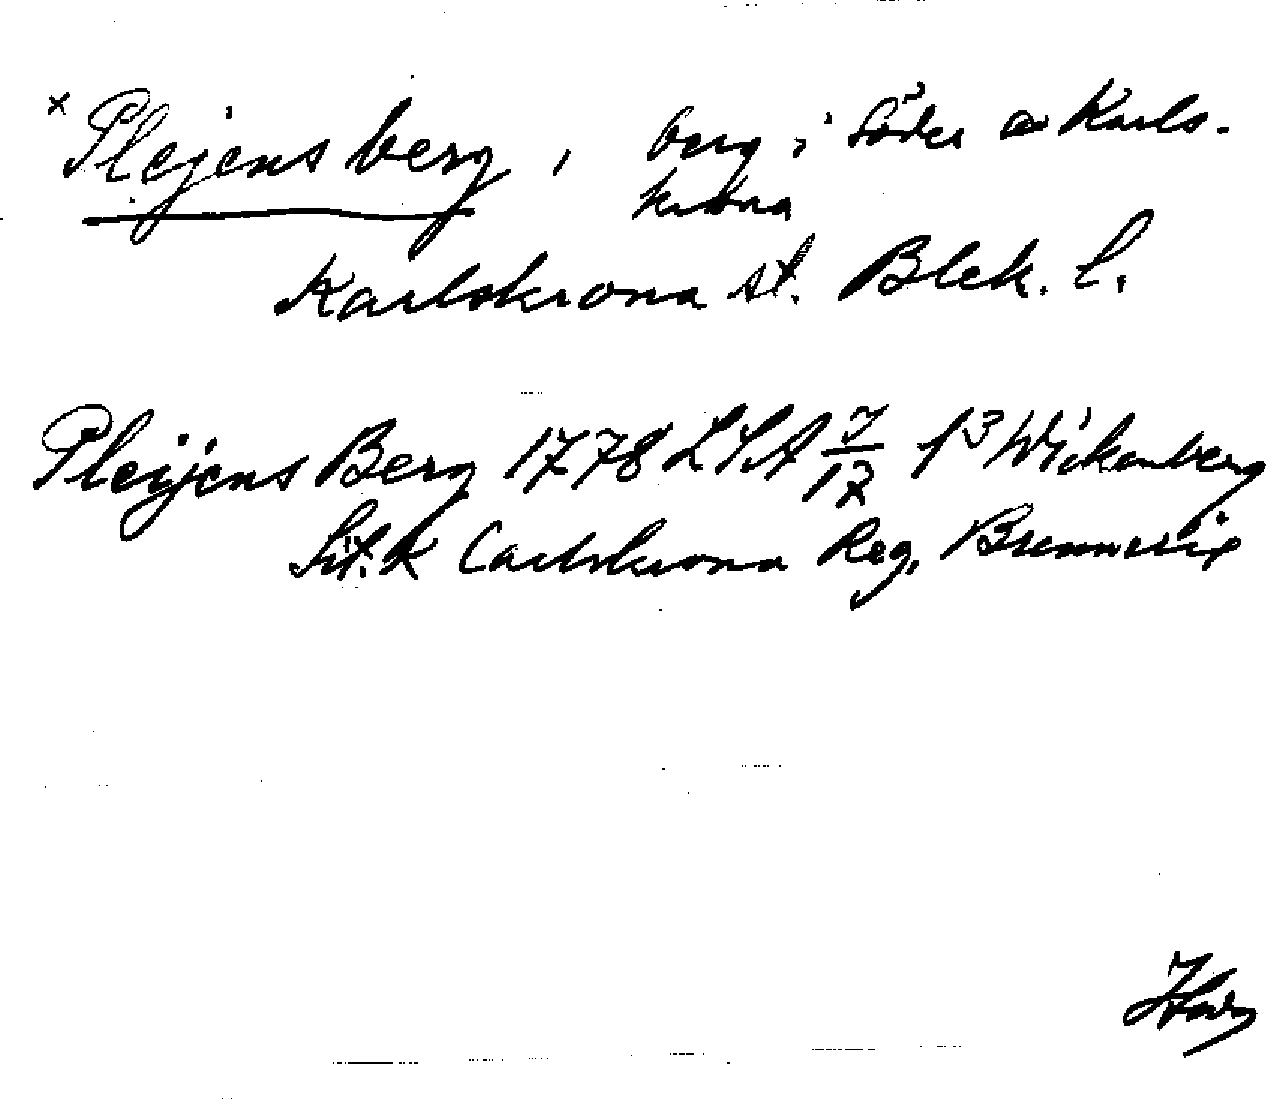 × Plejensberg, berg i söder av Karls-
krona
Karlskrona st. Blek. l.
Pleijens Berg 1778 LSA 7/17 f³ Wickenberg
Lit. K Carlskrona Reg. Brunnsvik